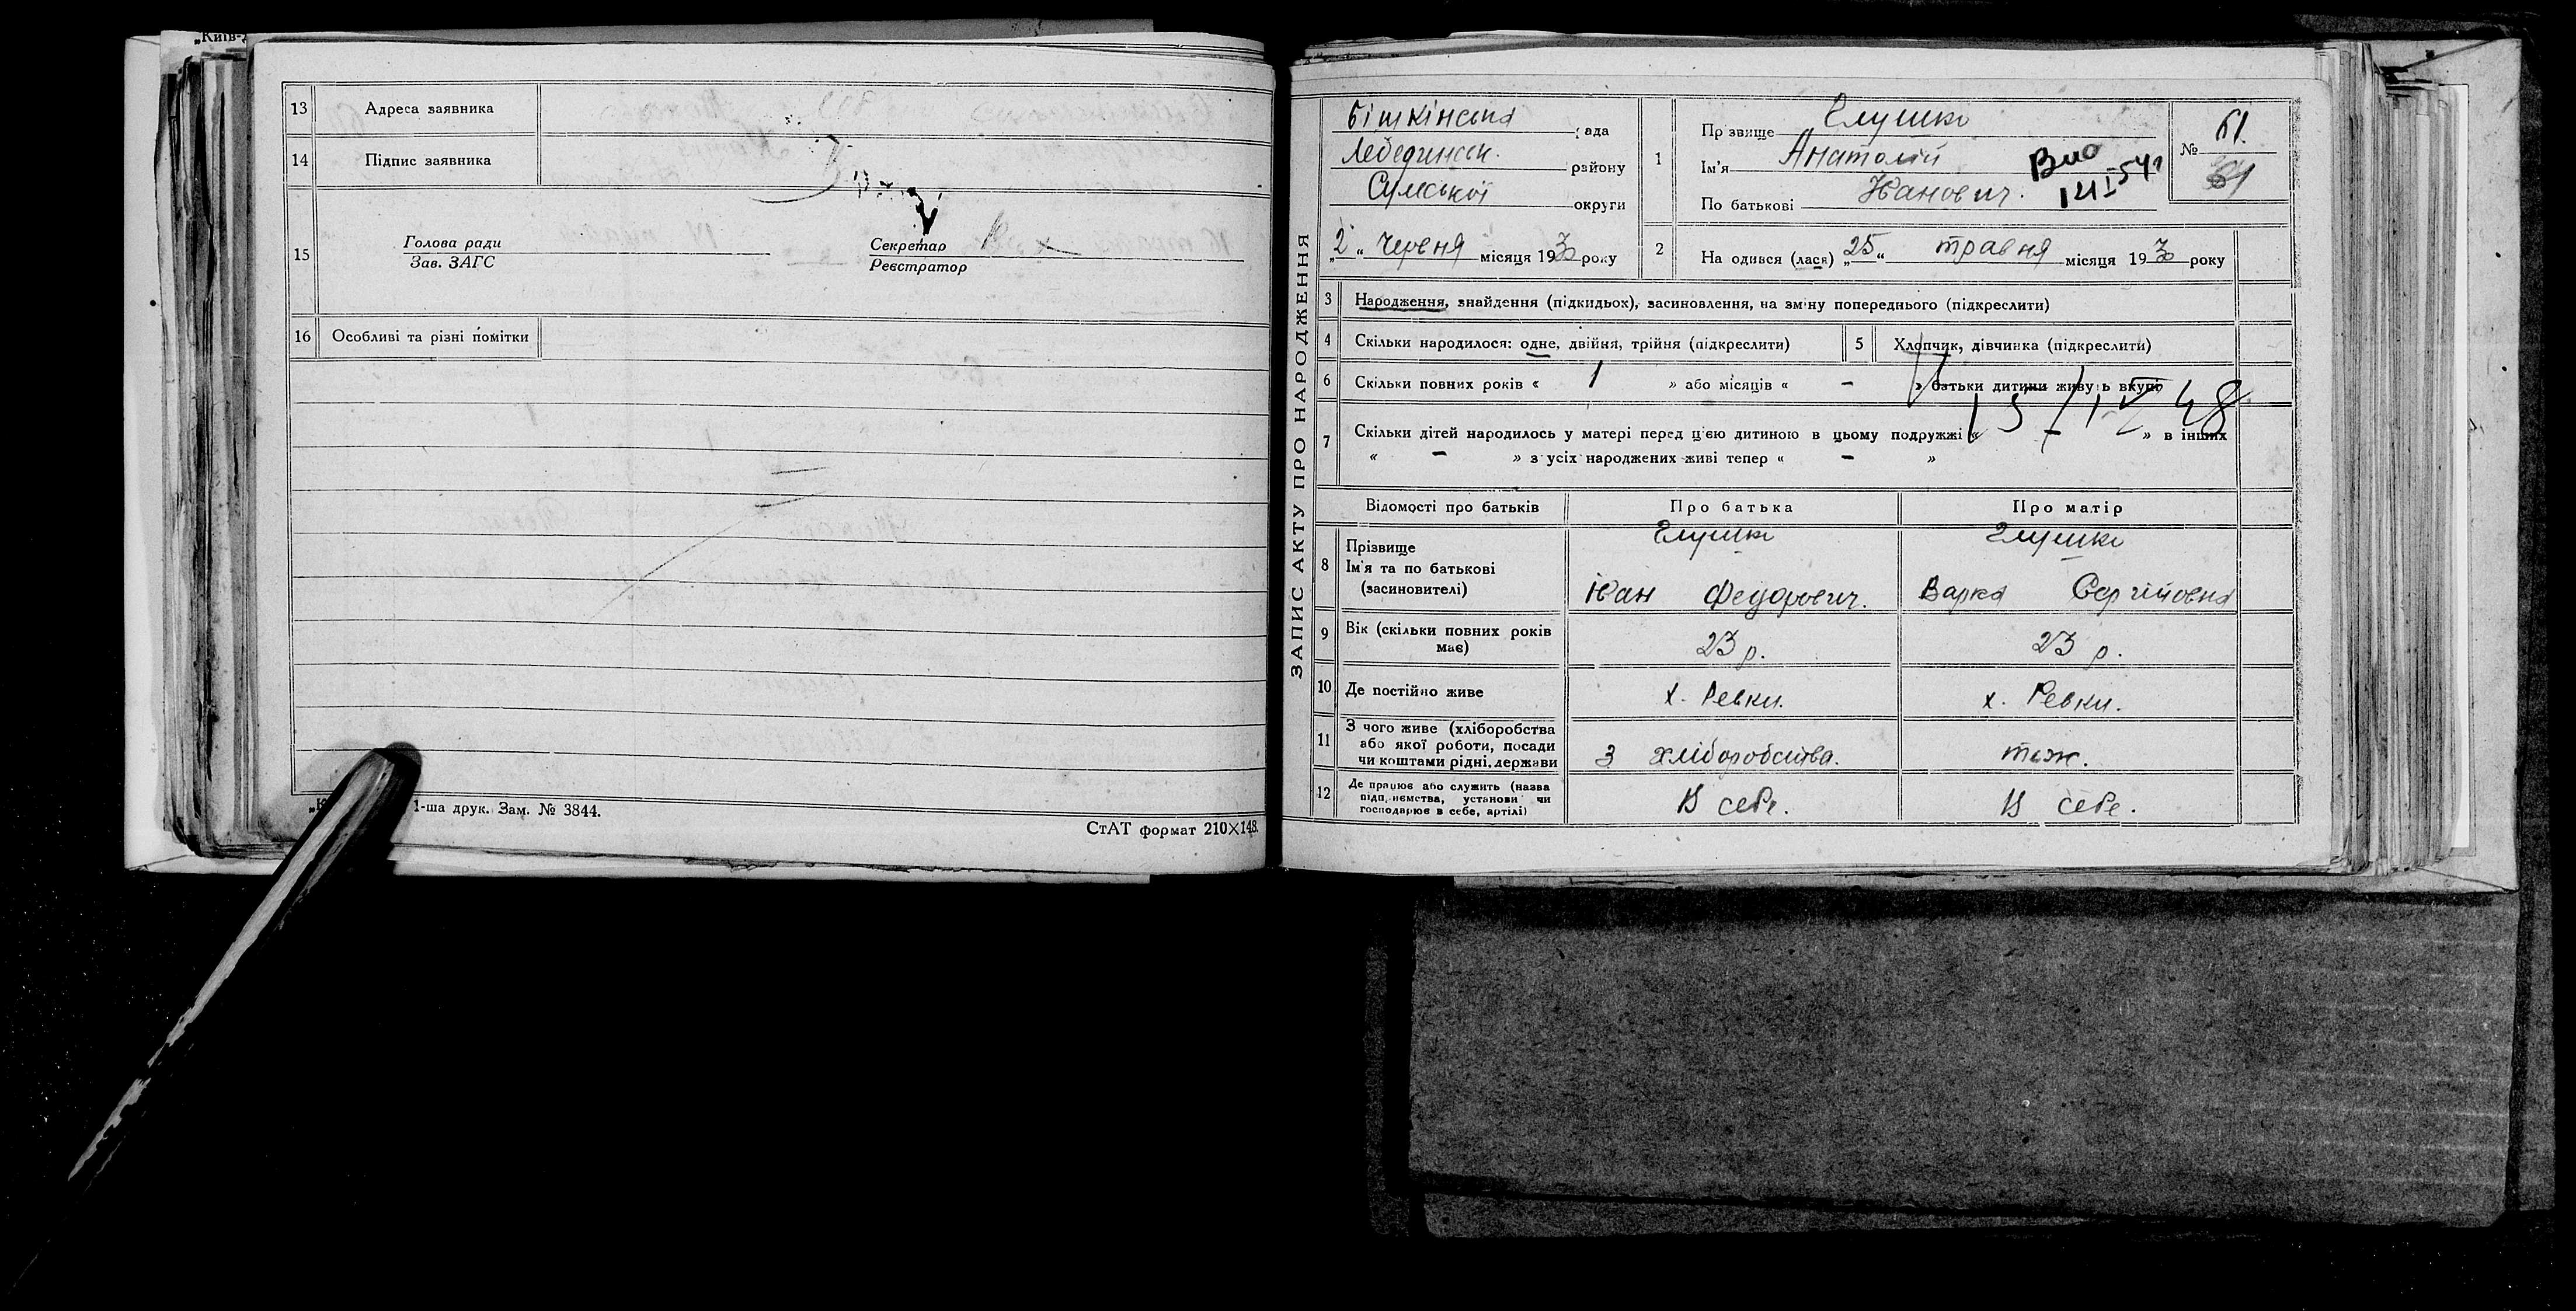 „Київ-
13 Адреса заявника
14 Підпис заявника
15 Голова ради
Зав. ЗАГС
Секретар
Реєстратор
16 Особливі та різні помітки
1-ша друк. Зам. № 3844.
СтАТ формат 210×148.
ЗАПИС АКТУ ПРО НАРОДЖЕННЯ
Бішкінська рада
Лебединськ. району
Сумської округи
„2“ Червня місяця 1930 року
1 Прізвище Глушко
Ім'я Анатолій
По батькові Іванович.
№ 61.
61
2 На одився (лася) „25“ травня місяця 1930 року
3 Народження, знайдення (підкидьох), засиновлення, на зміну попереднього (підкреслити)
4 Скільки народилося: одне, двійня, трійня (підкреслити)
5 Хлопчик, дівчинка (підкреслити)
6 Скільки повних років « 1 » або місяців « – » батьки дитини живуть вкупі
15/IV 48
7 Скільки дітей народилось у матері перед цією дитиною в цьому подружжі « – » в інших
« – » з усіх народжених живі тепер « – »
Відомості про батьків Про батька Про матір
8 Прізвище
Ім'я та по батькові
(засиновителі)
Глушко
Іван Федорович.
Глушко
Варка Сергійовна
9 Вік (скільки повних років
має)
23 р. 23 р.
10 Де постійно живе х. Ревки. х. Ревки.
11 З чого живе (хліборобства
або якої роботи, посади
чи коштами рідні, держави
З хліборобства. теж.
12 Де працює або служить (назва
підприємства, установи чи
господарює в себе, артілі)
В себе. В себе.